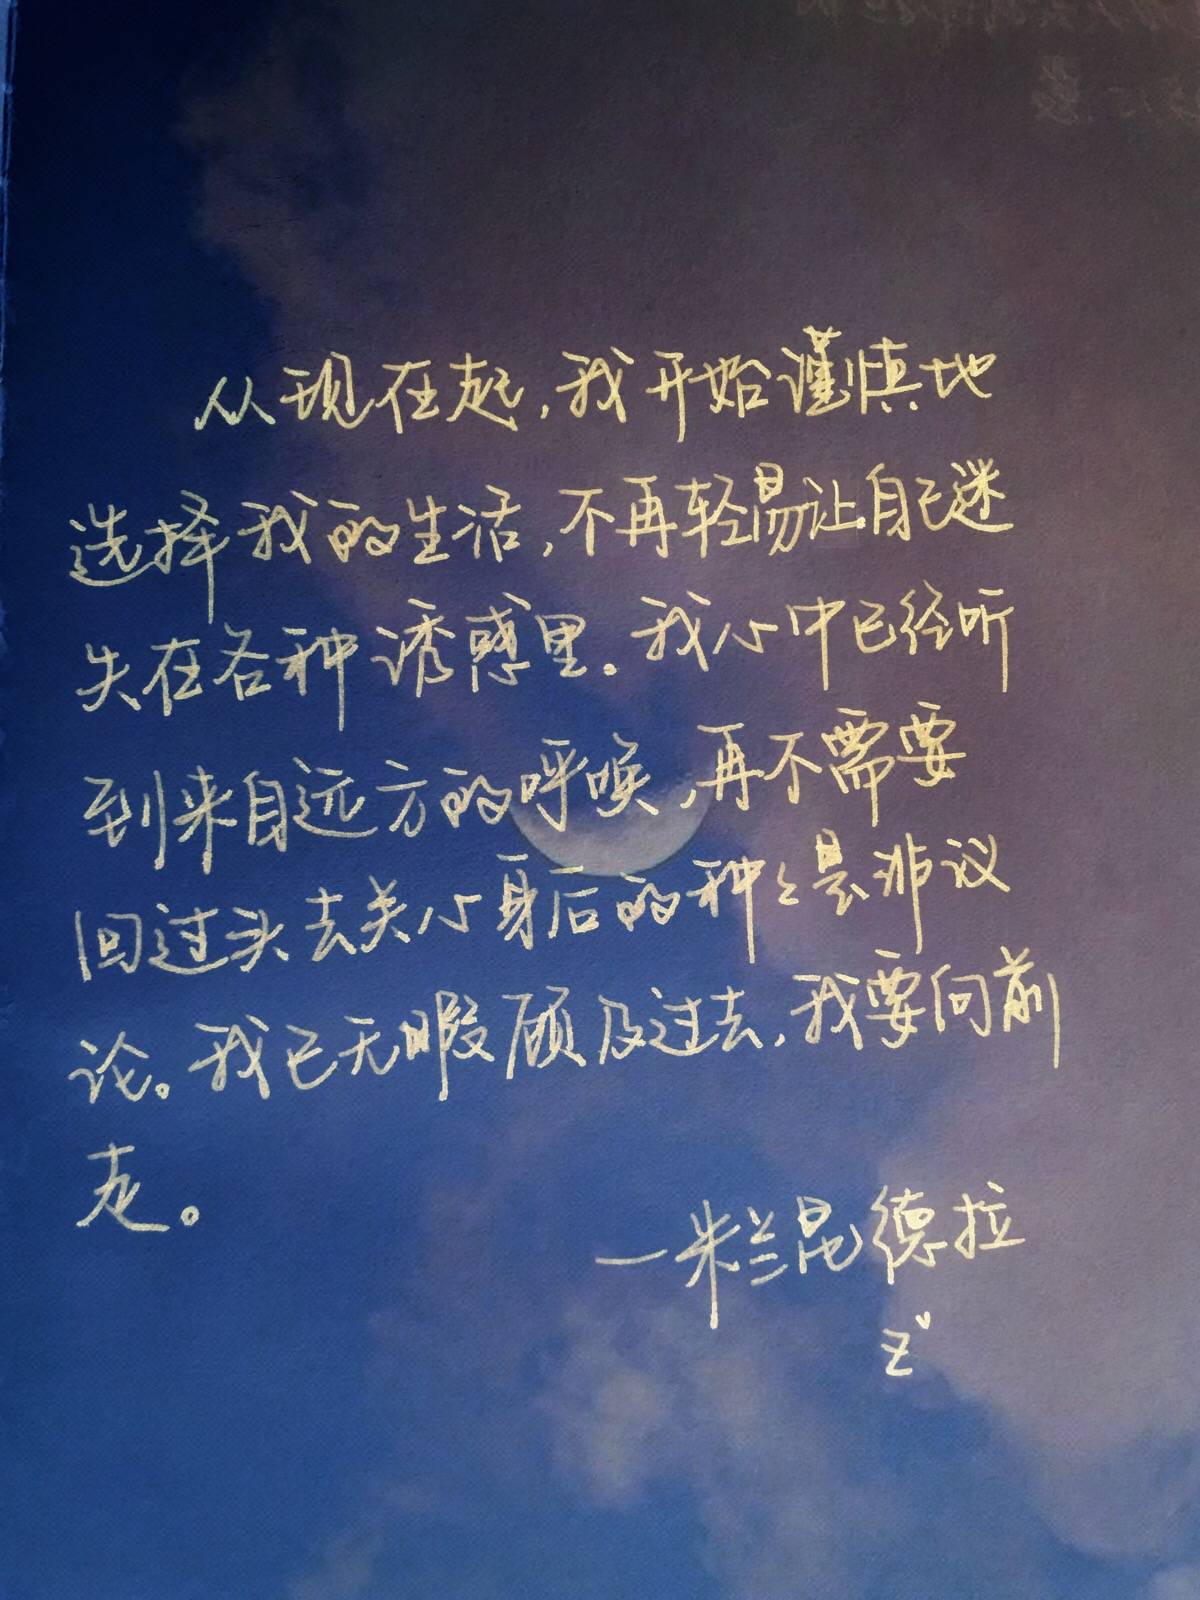 从现在起，我开始谨慎地
选择我的生活，不再轻易让自己迷
失在各种诱惑里。我心中已经听
到来自远方的呼唤，再不需要
回过头去关心身后的种々是非议
论。我已无暇顾及过去，我要向前
走。
一米兰昆德拉
Z